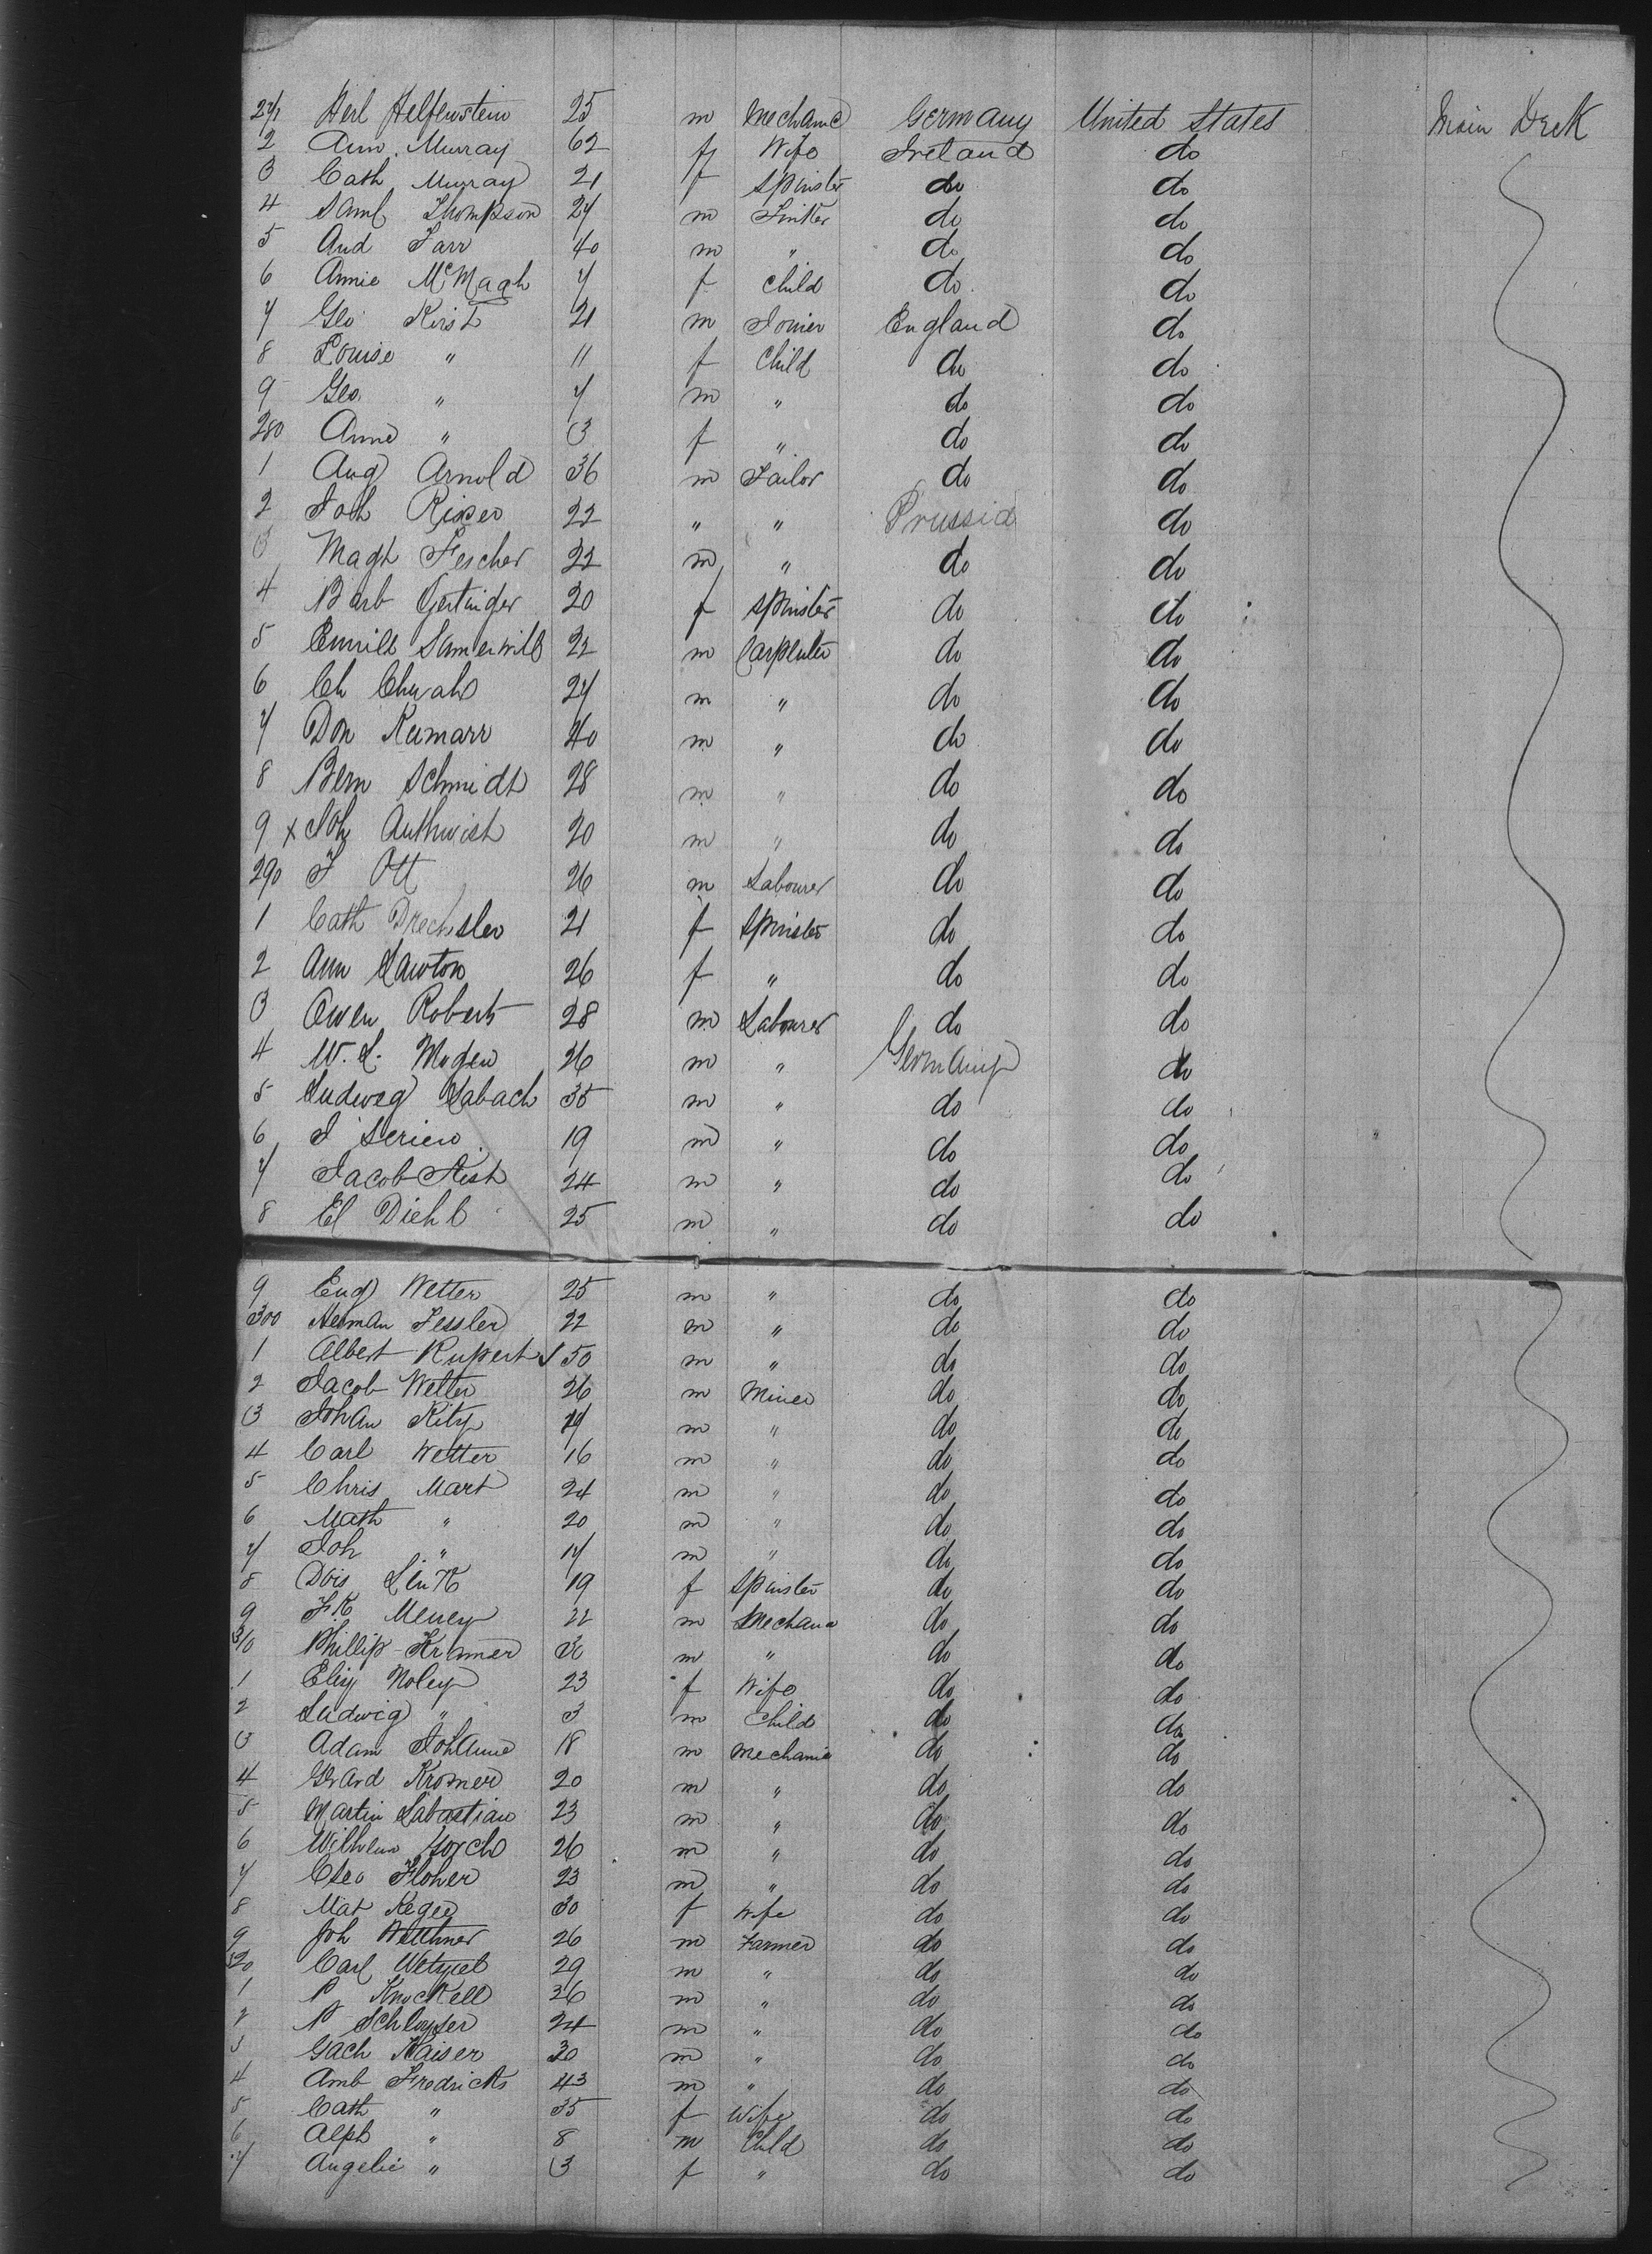 271 Herl Helfenstein 25 m Mechanic Germany United States Main Deck
2 Ann Murray 62 f Wife Ireland do
3 Cath Murray 21 f Spinster do do
4 Saml Thompson 27 m Tinker do do
5 And Farr 40 m " do do
6 Annie McMagh 7 f Child do do
7 Geo Kirst 21 m Joiner England do
8 Louise " 11 f Child do do
9 Geo " 7 m " do do
280 Anne " 3 f " do do
1 Aug Arnold 36 m Tailor do do
2 Joh 22 " " Prussia do
3 Magh Fescher 22 m " do do
4 Barb 20 f Spinster do do
5 22 m Carpenter do do
6 Ch 27 m " do do
7 Don Kumarr 40 m " do do
8 Bern Schmidt 28 m " do do
9 x Joh Authwist 20 m " do do
290 J Ott 26 m Labourer do do
1 Cath Drechsler 21 f Spinster do do
2 Ann Lawton 26 f " do do
3 Owen Roberts 28 m Labourer do do
4 W. L. 26 m " Germany do
5 Ludweg Labach 35 m " do do
6 J 19 m " do do
7 Jacob 24 m " do do
8 El Diehl 25 m " do do
9 Eug Wetter 25 m " do do
300 Herman Fessler 22 m " do do
1 Albert Rupert 50 m " do do
2 Jacob Wetter 26 m Miner do do
3 Johan 17 m " do do
4 Carl Wetter 16 m " do do
5 Chris Mart 24 m " do do
6 Math " 20 m " do do
7 Joh " 17 m " do do
8 Link 19 f Spinster do do
9 22 m Mechanic do do
310 Phillip Kramer m " do do
1 Elisy Noley 23 f Wife do do
2 Ludwig " 3 m Child do do
3 Adam Johanne 18 m Mechanic do do
4 Kromer 20 m " do do
5 Martin Sabastian 23 m " do do
6 Wilhelm 26 m " do do
7 Floher 23 m " do do
8 Mat 30 f Wife do do
9 Joh 26 m Farmer do do
320 Carl Wetzel 29 m " do do
1 P Knockell 36 m " do do
2 24 m " do do
3 Kaiser 30 m " do do
4 Amb Fredricks 43 m " do do
5 Cath " 35 f Wife do do
6 Alph " 8 m Child do do
7 Angelie " 3 f " do do